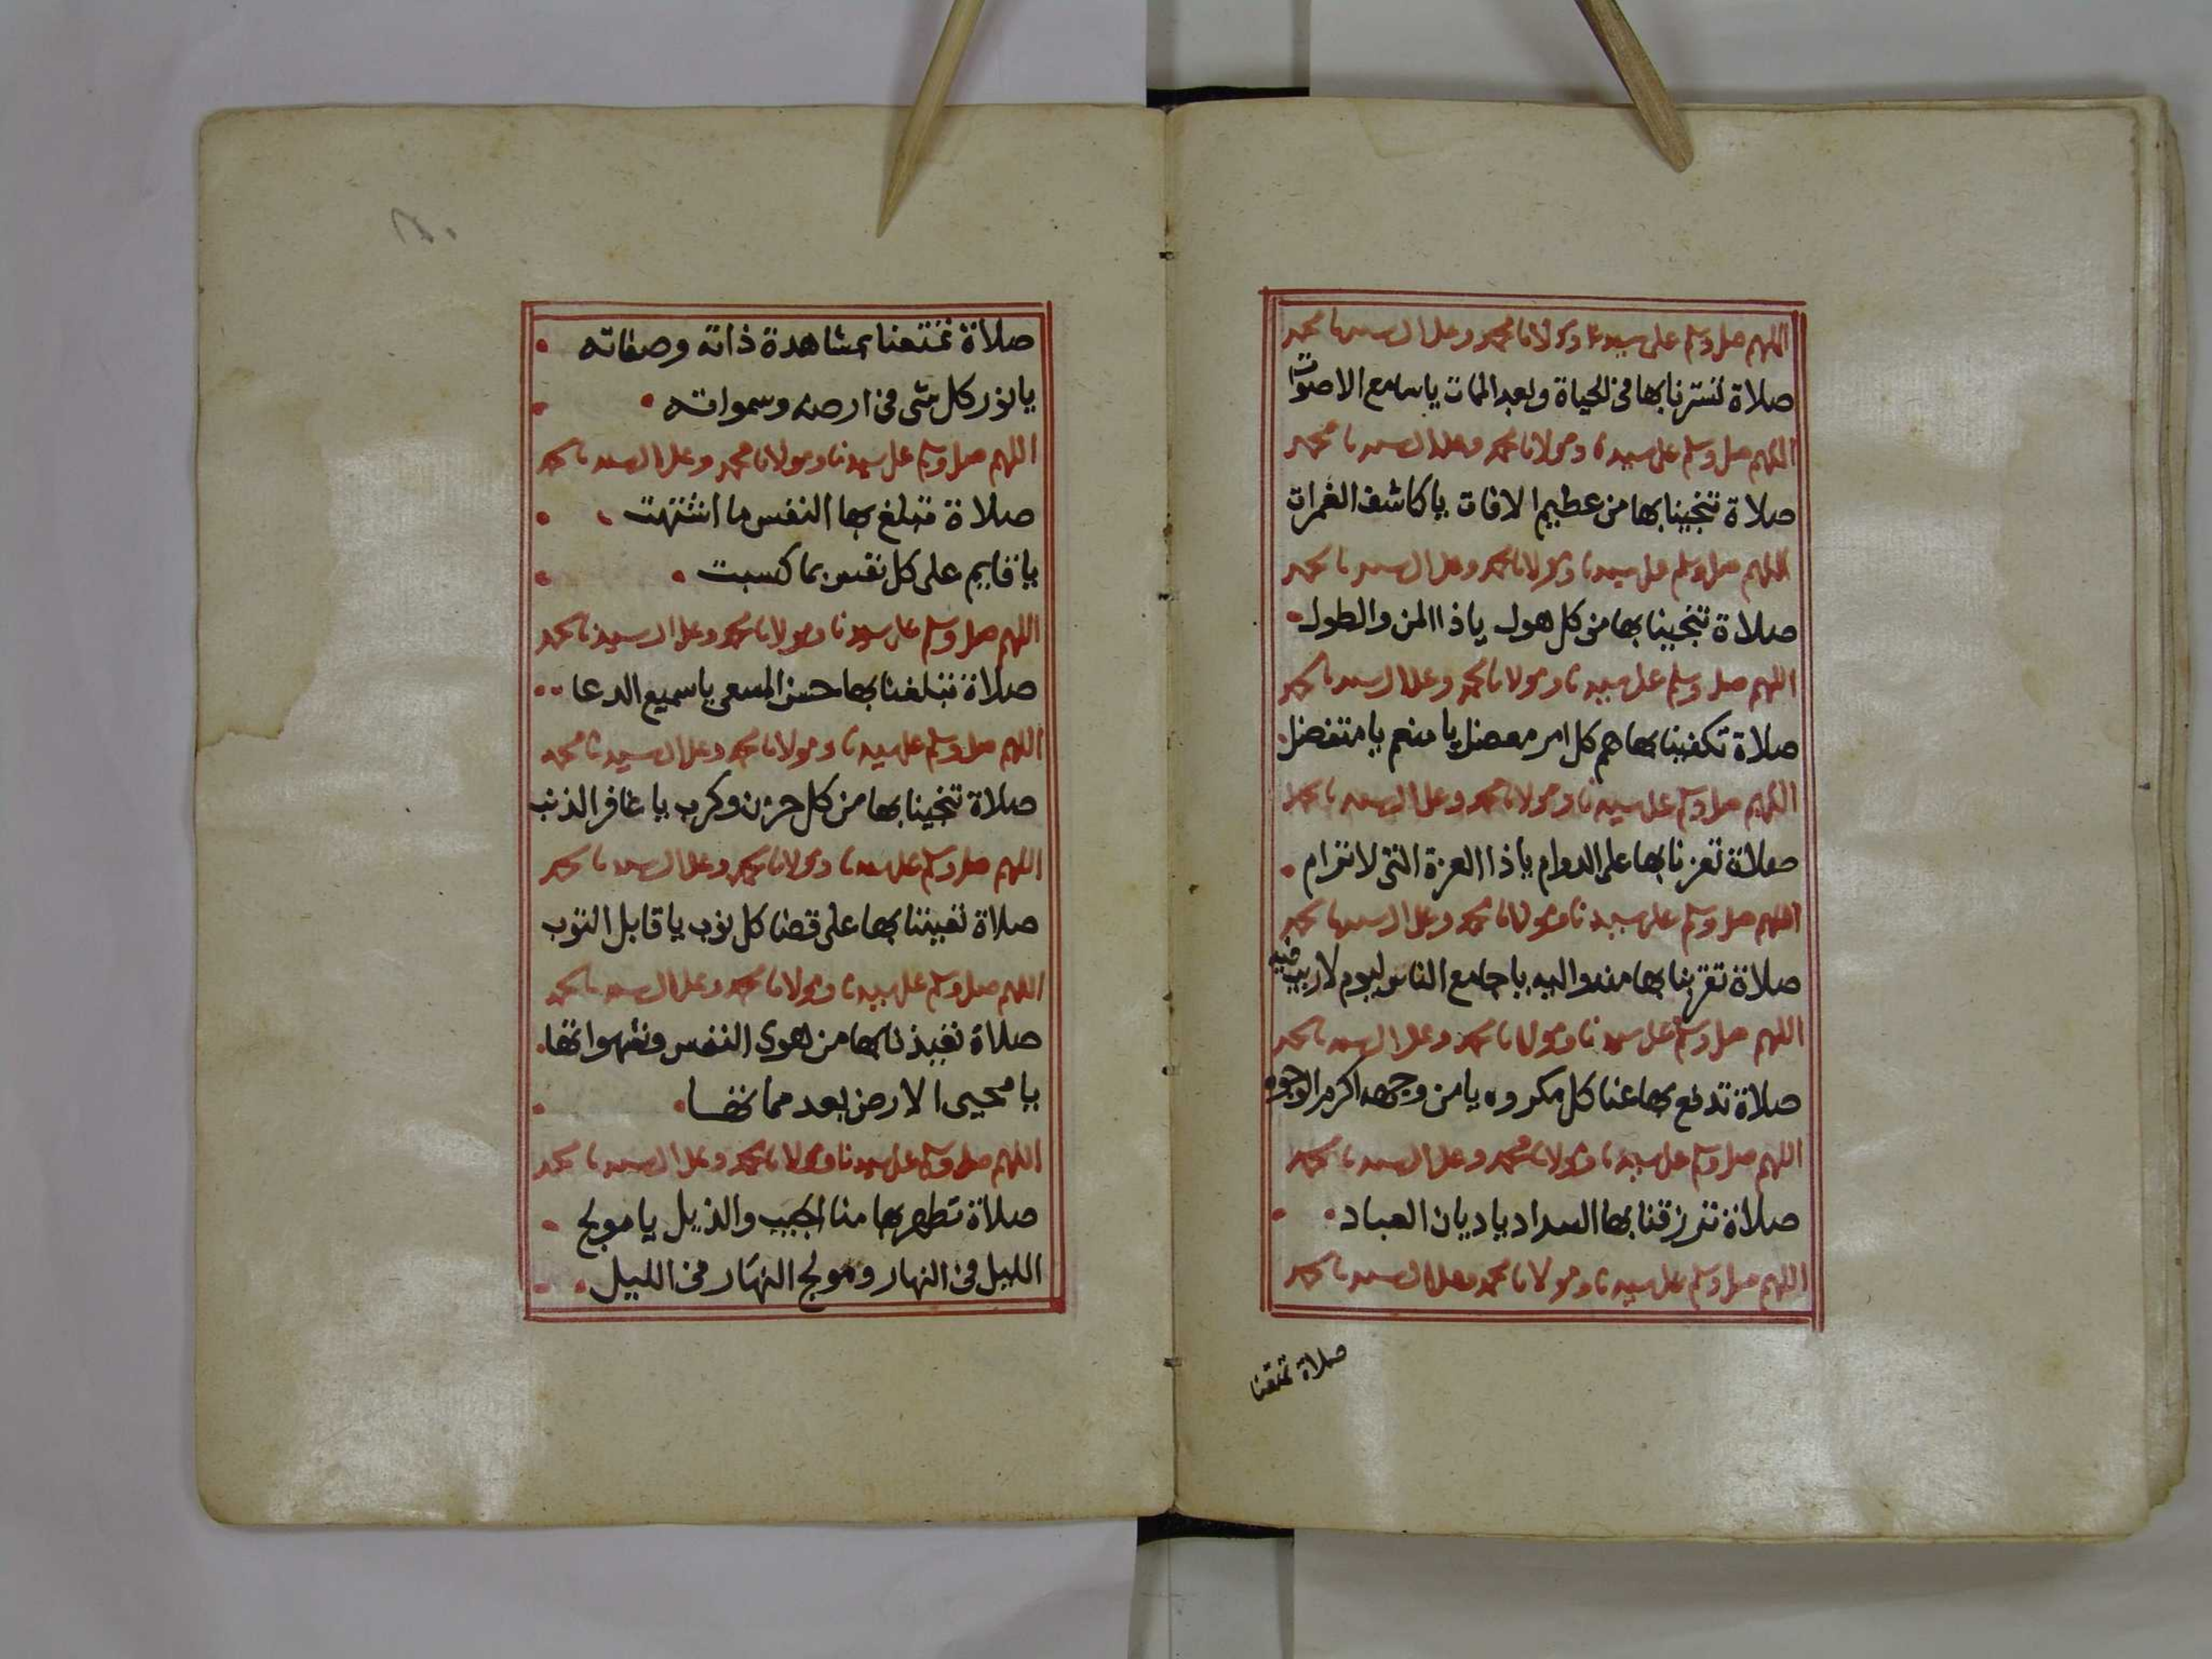 اللهم صل وسلم على سيدنا ومولانا محمد وعلى ال سيدنا محمد
صلاة تسترنا بها في الحياة وبعد الممات يا سامع الاصوات
اللهم صل وسلم على سيدنا ومولانا محمد وعلى ال سيدنا محمد
صلاة تنجينا بها من عظيم الافات يا كاشف الغمرات
اللهم صل وسلم على سيدنا ومولانا محمد وعلى ال سيدنا محمد
صلاة تنجينا بها من كل هول يا ذا المن والطول
اللهم صل وسلم على سيدنا ومولانا محمد وعلى ال سيدنا محمد
صلاة تكفينا بها هم كل امر معضل يا منعم يا متفضل
اللهم صل وسلم على سيدنا ومولانا محمد وعلى ال سيدنا محمد
صلاة تعزنا بها على الدوام يا ذا العزة التي لا ترام
اللهم صل وسلم على سيدنا ومولانا محمد وعلى ال سيدنا محمد
صلاة تقربنا بها منه واليه يا جامع الناس ليوم لا ريب فيه
اللهم صل وسلم على سيدنا ومولانا محمد وعلى ال سيدنا محمد
صلاة تدفع بها عنا كل مكروه يا من وجهه اكرم الوجوه
اللهم صل وسلم على سيدنا ومولانا محمد وعلى ال سيدنا محمد
صلاة ترزقنا بها السداد يا ديان العباد
اللهم صل وسلم على سيدنا ومولانا محمد وعلى ال سيدنا محمد
صلاة تمتعنا
صلاة تمتعنا بمشاهدة ذاته وصفاته
يا نور كل شى في ارضه وسمواته
اللهم صل وسلم على سيدنا ومولانا محمد وعلى ال سيدنا محمد
صلاة تبلغ بها النفس ما اشتهت
يا قايم على كل نفس بما كسبت
اللهم صل وسلم على سيدنا ومولانا محمد وعلى ال سيدنا محمد
صلاة تبلغنا بها حسن المسعى يا سميع الدعا
اللهم صل وسلم على سيدنا ومولانا محمد وعلى ال سيدنا محمد
صلاة تنجينا بها من كل حزن وكرب يا غافر الذنب
اللهم صل وسلم على سيدنا ومولانا محمد وعلى ال سيدنا محمد
صلاة تعيننا بها على قضا كل نوب يا قابل التوب
اللهم صل وسلم على سيدنا ومولانا محمد وعلى ال سيدنا محمد
صلاة تعيذنا بها من هوى النفس وشهواتها
يا محيى الارض بعد مماتها
اللهم صل وسلم على سيدنا ومولانا محمد وعلى ال سيدنا محمد
صلاة تطهر بها منا الجيب والذيل يا مولج
الليل في النهار ومولج النهار في الليل